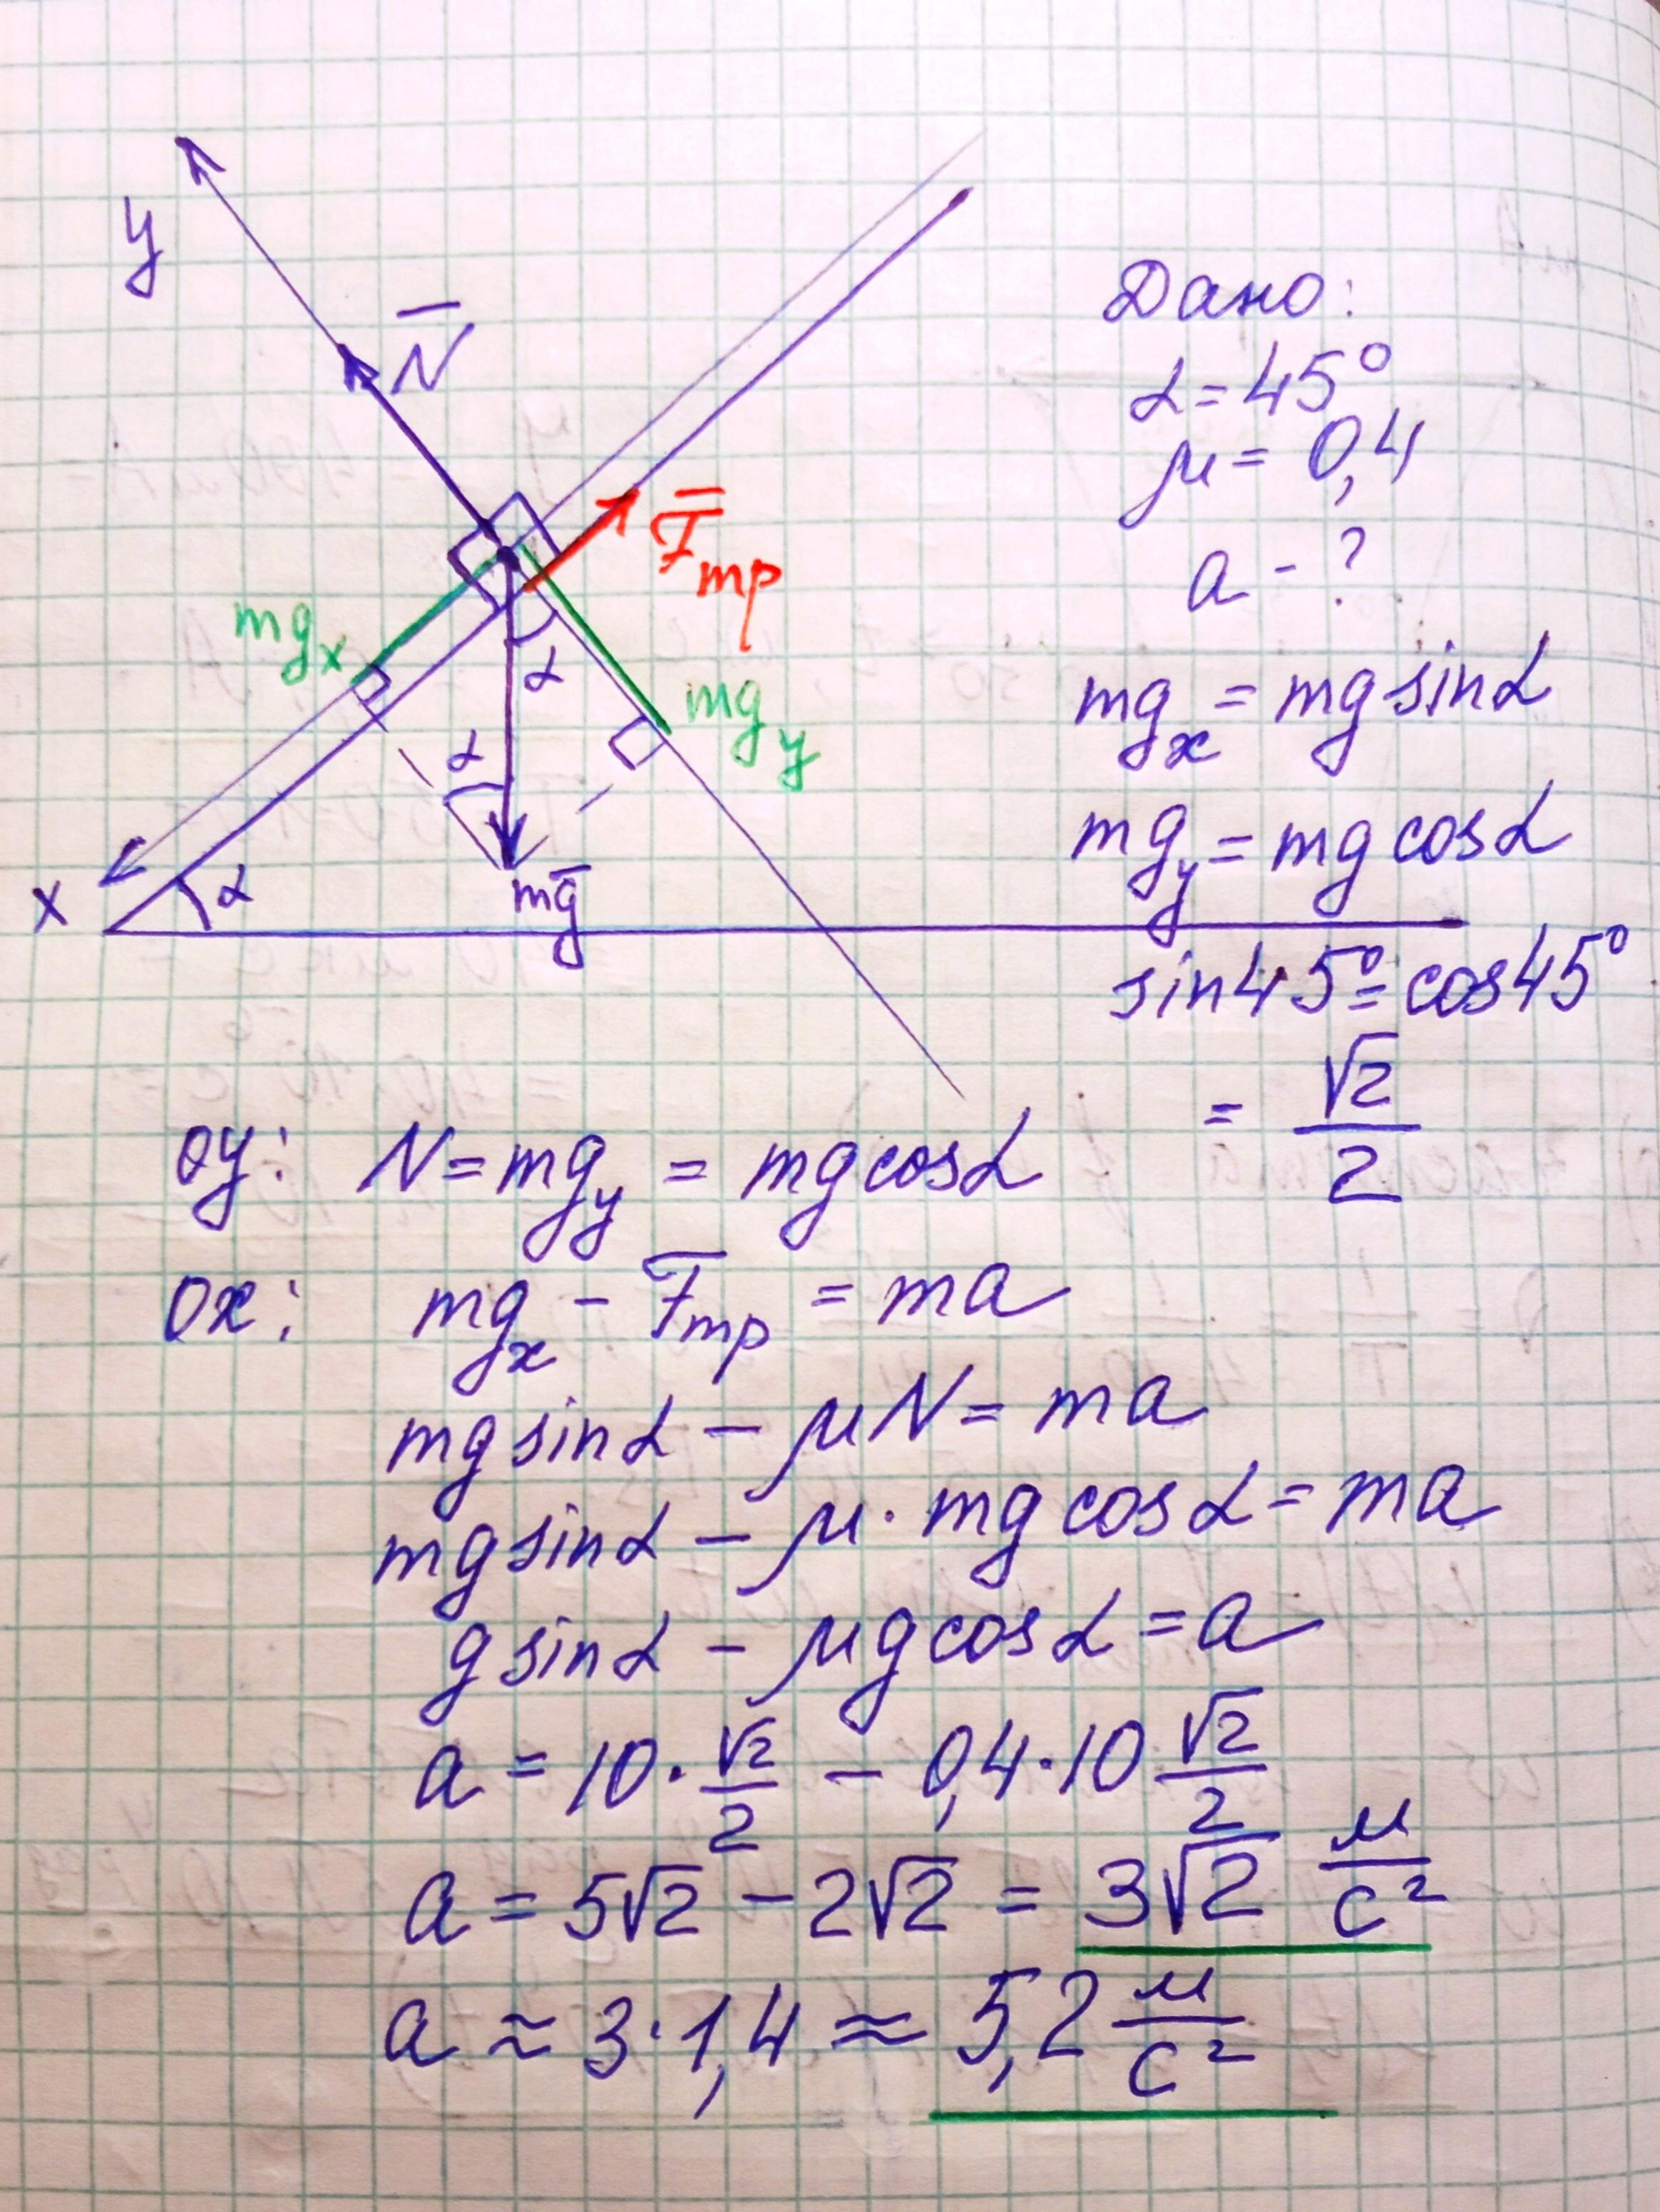 y
N̅
Дано:
α = 45°
μ = 0,4
a - ?
F̅тр
mgx
α
mgy
α
mg̅
x
α
mgx = mg sinα
mgy = mg cosα
sin45° = cos45°
= √2/2
oy: N = mgy = mg cosα
ox: mgx - F̅тр = ma
mg sinα - μN = ma
mg sinα - μ · mg cosα = ma
g sinα - μg cosα = a
a = 10 · √2/2 - 0,4 · 10 √2/2
a = 5√2 - 2√2 = 3√2 м/с²
a ≈ 3 · 1,4 ≈ 5,2 м/с²